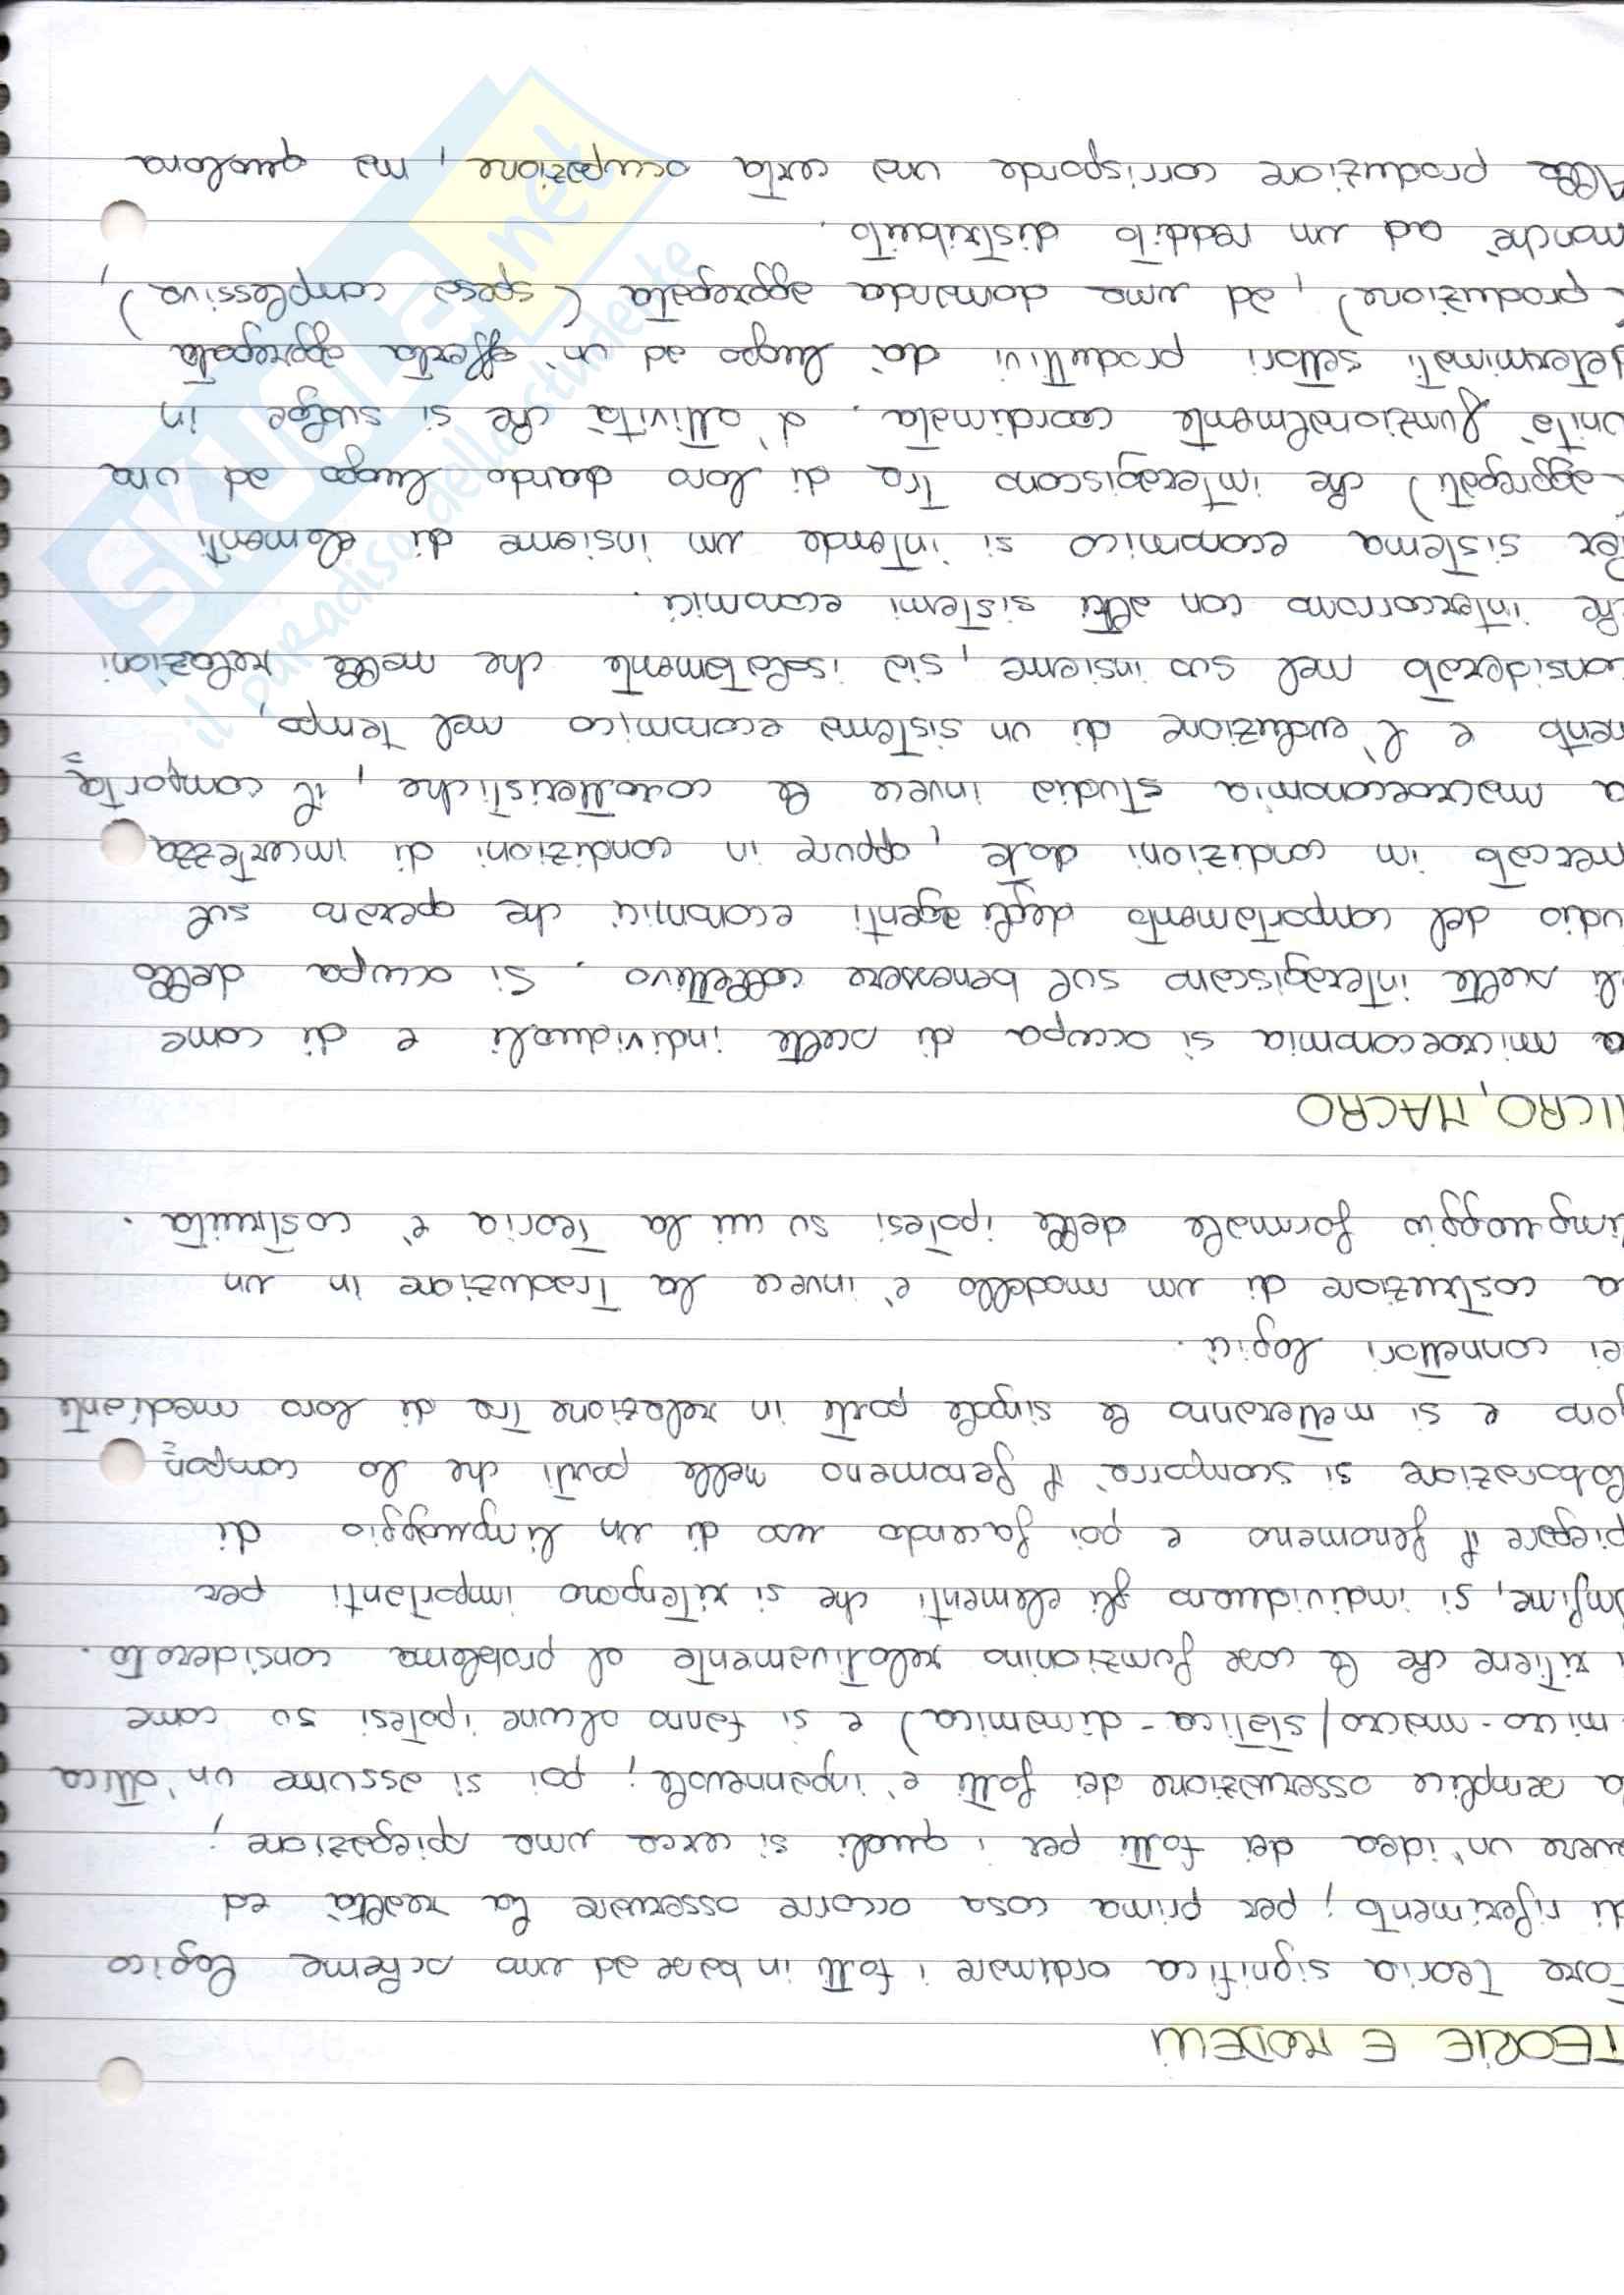 TEORIE E MODELLI
Fare teoria significa ordinare i fatti in base ad uno schema logico
di riferimento; per prima cosa occorre osservare la realtà ed
avere un'idea dei fatti per i quali si cerca una spiegazione;
la semplice osservazione dei fatti è ingannevole; poi si assume un'ottica
(micro-macro/statica-dinamica) e si fanno alcune ipotesi su come
si ritiene che le cose funzionino relativamente al problema considerato.
Infine, si individuano gli elementi che si ritengono importanti per
spiegare il fenomeno e poi facendo uso di un linguaggio di
elaborazione si scomporrà il fenomeno nelle parti che lo compon=
gono e si metteranno le singole parti in relazione tra di loro mediante
dei connettori logici.
La costruzione di un modello è invece la traduzione in un
linguaggio formale delle ipotesi su cui la teoria è costruita.
MICRO, MACRO
La microeconomia si occupa di scelte individuali e di come
tali scelte interagiscano sul benessere collettivo. Si occupa dello
studio del comportamento degli agenti economici che operano sul
mercato in condizioni date, oppure in condizioni di incertezza
La macroeconomia studia invece le caratteristiche, il comporta=
mento e l'evoluzione di un sistema economico nel tempo,
considerato nel suo insieme, sia isolatamente che nelle relazioni
che intercorrono con altri sistemi economici.
Per sistema economico si intende un insieme di elementi
(aggregati) che interagiscono tra di loro dando luogo ad una
unità funzionalmente coordinata. L'attività che si svolge in
determinati settori produttivi dà luogo ad un'offerta aggregata
(produzione), ad una domanda aggregata (spesa complessiva),
nonché ad un reddito distribuito.
Alla produzione corrisponde una certa occupazione, ma qualora
SKUOLA.net
il paradiso dello studente